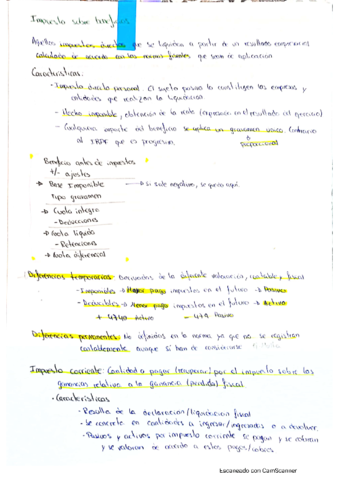 Impuesto sobre beneficios
Aquellos impuestos directos que se liquidan a partir de un resultado empresarial
calculado de acuerdo con las normas fiscales que sean de aplicación
Características:
- Impuesto directo personal. El sujeto pasivo lo constituyen las empresas y
entidades que realizan la liquidación
- Hecho imponible, obtención de la renta (empresario en el resultado del ejercicio)
- Cualquier importe del beneficio se aplica un gravamen único contrario
al IRPF que es progresivo
proporcional
Beneficio antes de impuestos
+/- ajustes
→ Base Imponible → si sale negativo, se queda aquí.
Tipo gravamen
→ Cuota íntegra
- Deducciones
→ Cuota líquida
- Retenciones
→ Cuota diferencial
Diferencias temporarias: Derivadas de la diferente valoración, contable y fiscal
- Imponibles → Mayor pago impuestos en el futuro → Pasivo
- Deducibles → Menor pago impuestos en el futuro → Activo
+ 4740 Activo - 479 Pasivo
Diferencias permanentes: No definidas en la norma ya que no se registran
contablemente aunque sí han de considerarse
Impuesto corriente: Cantidad a pagar (recuperar) por el impuesto sobre las
ganancias relativo a la ganancia (pérdida) fiscal
- Características
- Resulta de la declaración/liquidación fiscal
- Se concreta en cantidades a ingresar/ingresadas o a devolver.
- Pasivos y activos por impuesto corriente se pagan y se cobran
y se valoran de acuerdo a estos pagos/cobros
Escaneado con CamScanner